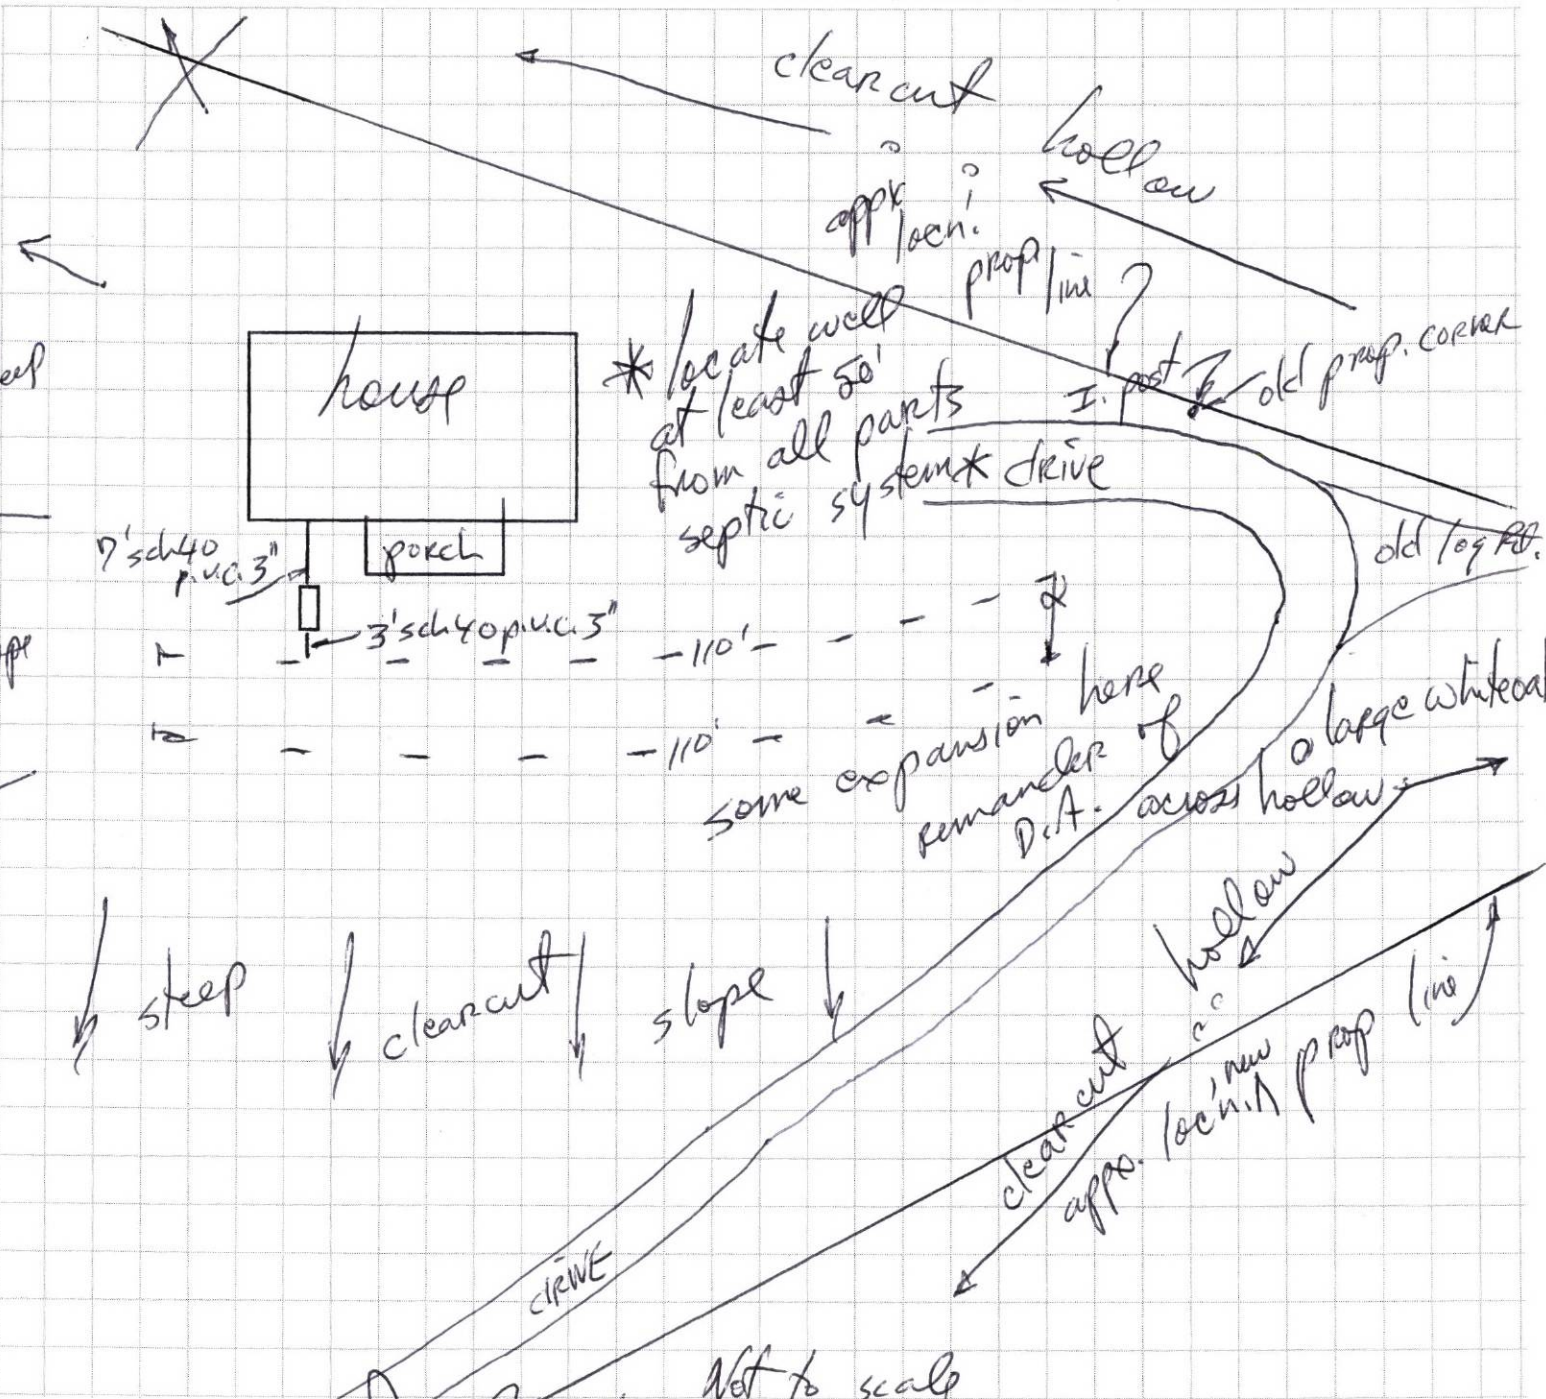 clearcut
hollow
appx
locn.
prop
line
* locate well
at least 50'
from all parts
septic system *
I. post
old prop. corner
drive
old log Rd.
house
porch
7' sch40
p.v.c. 3"
3' sch40 p.v.c. 3"
110'
110'
some expansion here
remander of
D.A. across hollow
large whiteoa
steep
clearcut
slope
hollow
clearcut
appx. loc'n. new prop line
DRIVE
Not to scale